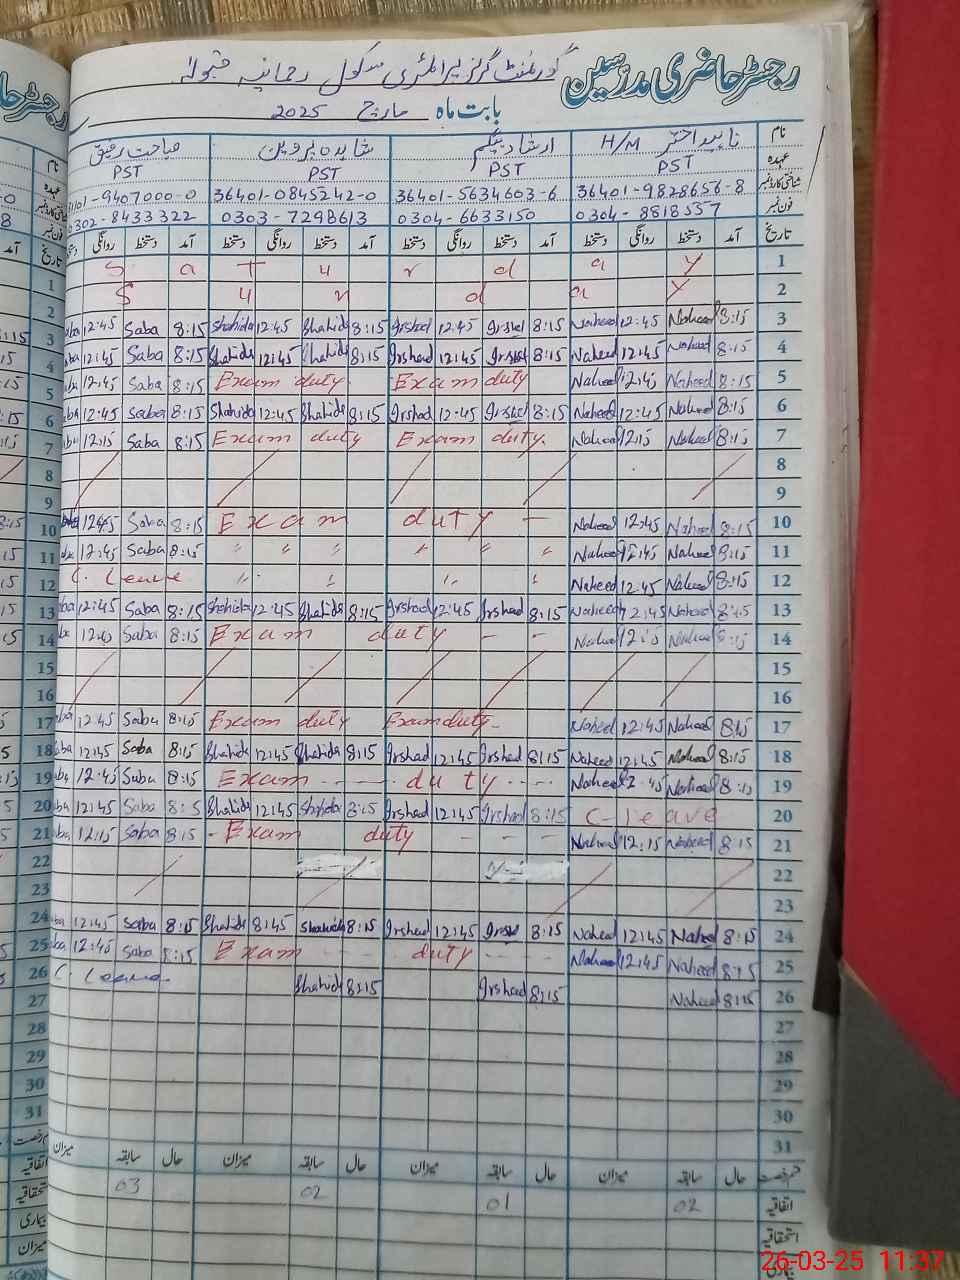 رجسٹر حاضری مدرسین گورنمنٹ گرلز پرائمری سکول رحمانیہ قبولہ
بابت ماہ مارچ 2025
نام ناہید اختر H/M ارشاد بیگم شاہدہ پروین صباحت رفیق
عہدہ PST PST PST PST
شناختی کارڈ نمبر 36401-9828656-8 36401-5634603-6 36401-0845242-0 31101-9407000-0
فون نمبر 0304-8818557 0304-6633150 0303-7298613 0302-8433322
تاریخ آمد دستخط روانگی دستخط آمد دستخط روانگی دستخط آمد دستخط روانگی دستخط آمد دستخط روانگی
S a T u r d a y 1
S u n d a y 2
12:45 Saba 8:15 Shahida 12:45 Shahida 8:15 Irshad 12:45 Irshad 8:15 Naheed 12:45 Naheed 8:15 3
12:45 Saba 8:15 Shahida 12:45 Shahida 8:15 Irshad 12:45 Irshad 8:15 Naheed 12:45 Naheed 8:15 4
12:45 Saba 8:15 Exam duty Exam duty Naheed 12:45 Naheed 8:15 5
12:45 Saba 8:15 Shahida 12:45 Shahida 8:15 Irshad 12:45 Irshad 8:15 Naheed 12:45 Naheed 8:15 6
12:15 Saba 8:15 Exam duty Exam duty. Naheed 12:15 Naheed 8:15 7
8
9
12:45 Saba 8:15 Exam duty - Naheed 12:45 Naheed 8:15 10
12:45 Saba 8:15 " " " " " " Naheed 12:45 Naheed 8:15 11
C. Leave " " " " Naheed 12:45 Naheed 8:15 12
12:45 Saba 8:15 Shahida 12:45 Shahida 8:15 Irshad 12:45 Irshad 8:15 Naheed 12:45 Naheed 8:15 13
12:15 Saba 8:15 Exam duty - - Naheed 12:15 Naheed 8:15 14
15
16
12:45 Saba 8:15 Exam duty Exam duty - Naheed 12:45 Naheed 8:15 17
12:45 Saba 8:15 Shahida 12:45 Shahida 8:15 Irshad 12:45 Irshad 8:15 Naheed 12:45 Naheed 8:15 18
12:45 Saba 8:15 Exam ---- duty ---- Naheed 12:45 Naheed 8:15 19
12:45 Saba 8:15 Shahida 12:45 Shahida 8:15 Irshad 12:45 Irshad 8:15 C-leave 20
12:15 Saba 8:15 - Exam duty - - - Naheed 12:15 Naheed 8:15 21
22
23
12:45 Saba 8:15 Shahida 8:45 Shahida 8:15 Irshad 12:45 Irshad 8:15 Naheed 12:45 Naheed 8:15 24
12:45 Saba 8:15 Exam ---- duty ---- Naheed 12:45 Naheed 8:15 25
C. Leave Shahida 8:15 Irshad 8:15 Naheed 8:15 26
27
28
29
30
31
قسم رخصت حال سابقہ میزان حال سابقہ میزان حال سابقہ میزان حال سابقہ میزان
اتفاقیہ 02 01 02 03
استحقاقیہ
بیماری
26-03-25 11:37